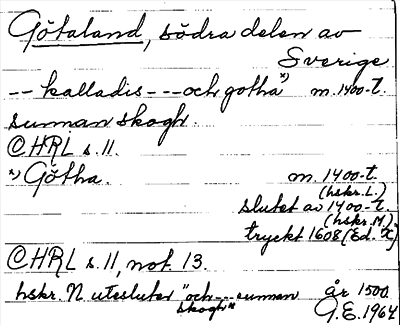 Götaland, södra delen av
Sverige
-- kalladis --- och gotha x) m. 1400-t.
sunnan skogh.
CHRL s. 11.
x) Götha. m. 1400-t.
(hskr. L.)
slutet av 1400-t.
(hskr. M.)
tryckt 1608 (Ed. X)
CHRL s. 11, not. 13.
hskr. N utesluter "och --- sunnan år 1500
skogh"
G.E. 1964